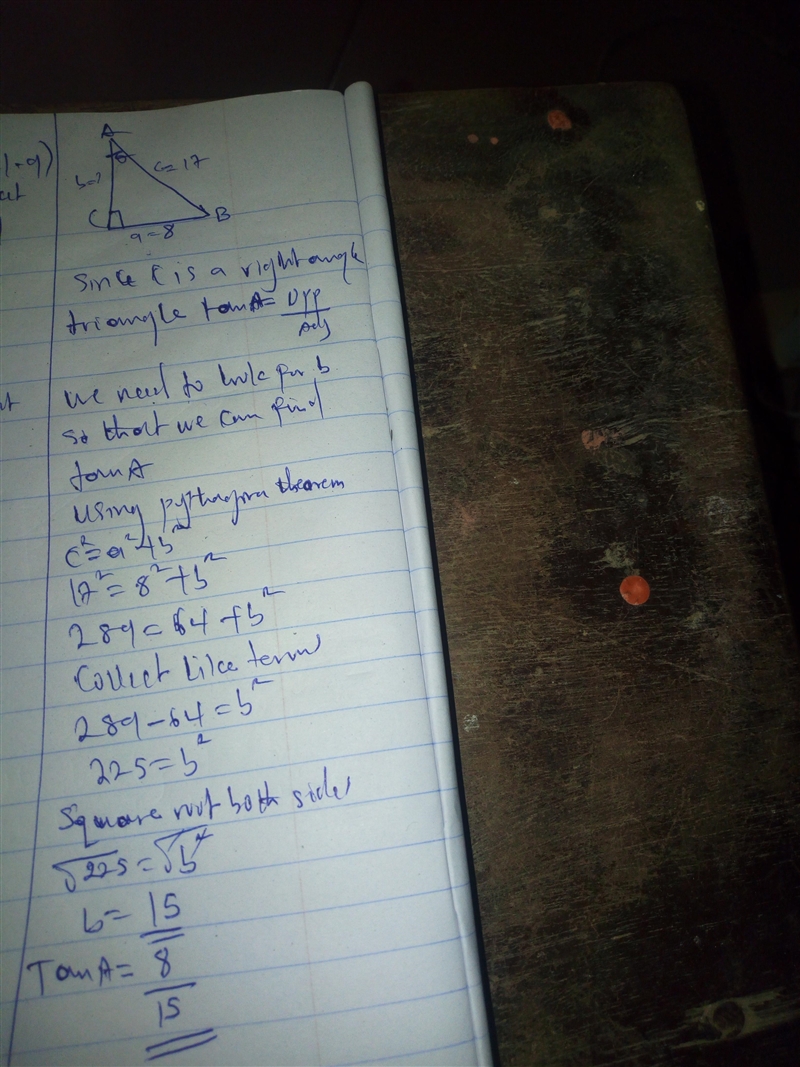 1.9)
A
θ
b=?
c=17
C
B
a=8
Since C is a right angle
triangle tanA= Opp
Adj
we need to look for b
so that we can find
tanA
using pythagora theorem
c²=a²+b²
17²=8²+b²
289=64+b²
Collect like terms
289-64=b²
225=b²
Square root both sides
√225=√b²
b=15
TanA= 8
15